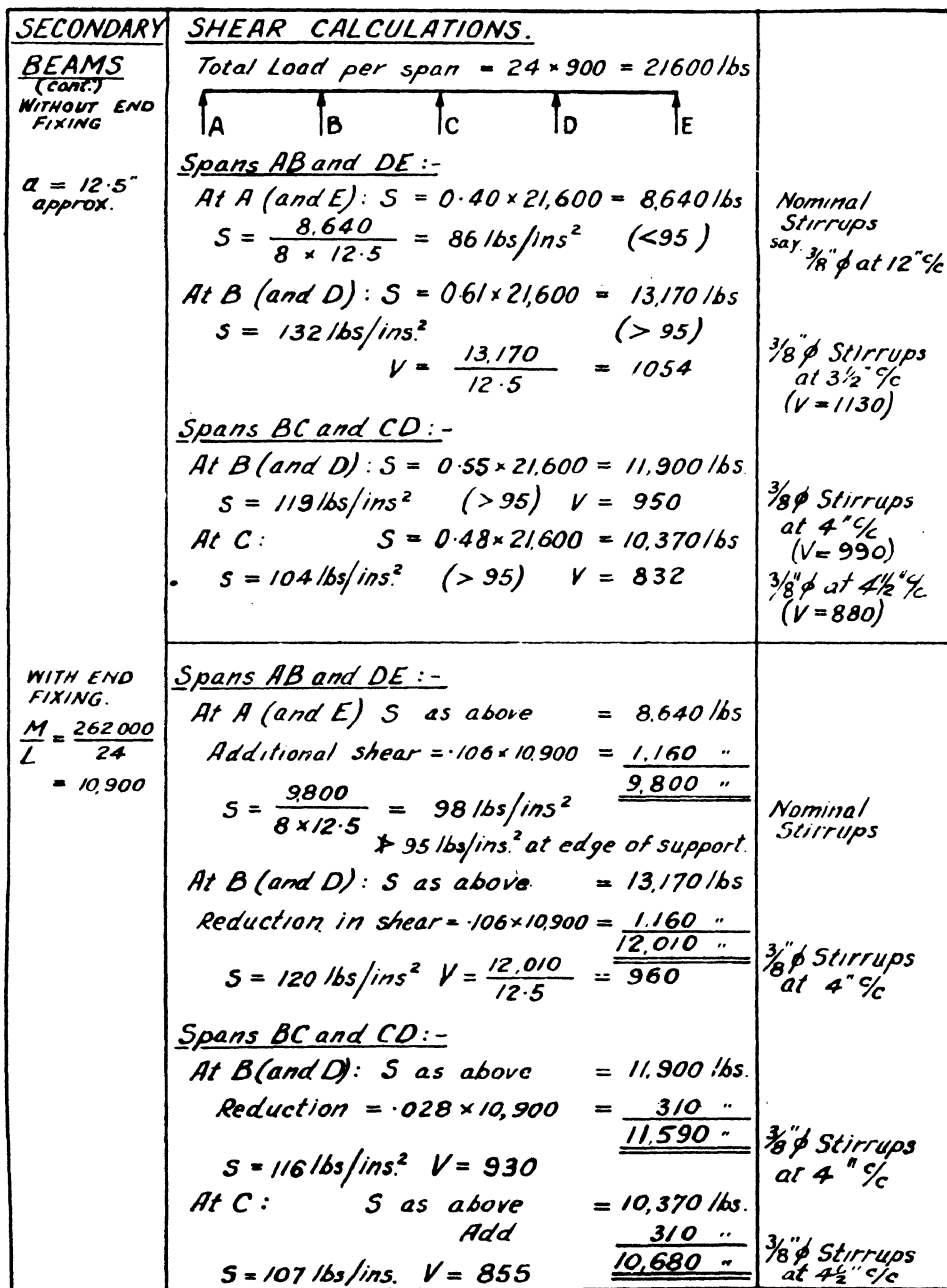 SECONDARY
BEAMS
(cont.)
WITHOUT END
FIXING
a = 12·5"
approx.
SHEAR CALCULATIONS.
Total Load per span = 24 × 900 = 21600 lbs
A B C D E
Spans AB and DE :-
At A (and E): S = 0·40 × 21,600 = 8,640 lbs
S = 8,640 / 8 × 12·5 = 86 lbs/ins² (<95)
Nominal
Stirrups
say. 3/8" ϕ at 12" c/c
At B (and D): S = 0·61 × 21,600 = 13,170 lbs
s = 132 lbs/ins.² (> 95)
V = 13,170 / 12·5 = 1054
3/8" ϕ Stirrups
at 3½" c/c
(V = 1130)
Spans BC and CD :-
At B (and D): S = 0·55 × 21,600 = 11,900 lbs.
s = 119 lbs/ins² (> 95) V = 950
3/8 ϕ Stirrups
at 4" c/c
(V = 990)
At C: S = 0·48 × 21,600 = 10,370 lbs
s = 104 lbs/ins.² (> 95) V = 832
3/8" ϕ at 4½" c/c
(V = 880)
WITH END
FIXING.
M / L = 262000 / 24
= 10,900
Spans AB and DE :-
At A (and E) S as above = 8,640 lbs
Additional shear = ·106 × 10,900 = 1,160 "
9,800 "
S = 9,800 / 8 × 12·5 = 98 lbs/ins²
≯ 95 lbs/ins.² at edge of support.
Nominal
Stirrups
At B (and D): S as above. = 13,170 lbs
Reduction in shear = ·106 × 10,900 = 1,160 "
12,010 "
S = 120 lbs/ins² V = 12,010 / 12·5 = 960
3/8" ϕ Stirrups
at 4" c/c
Spans BC and CD :-
At B (and D): S as above = 11,900 lbs.
Reduction = ·028 × 10,900 = 310 "
11,590 "
s = 116 lbs/ins.² V = 930
3/8" ϕ Stirrups
at 4" c/c
At C: S as above = 10,370 lbs.
Add 310 "
10,680 "
S = 107 lbs/ins. V = 855
3/8" ϕ Stirrups
at 4½" c/c